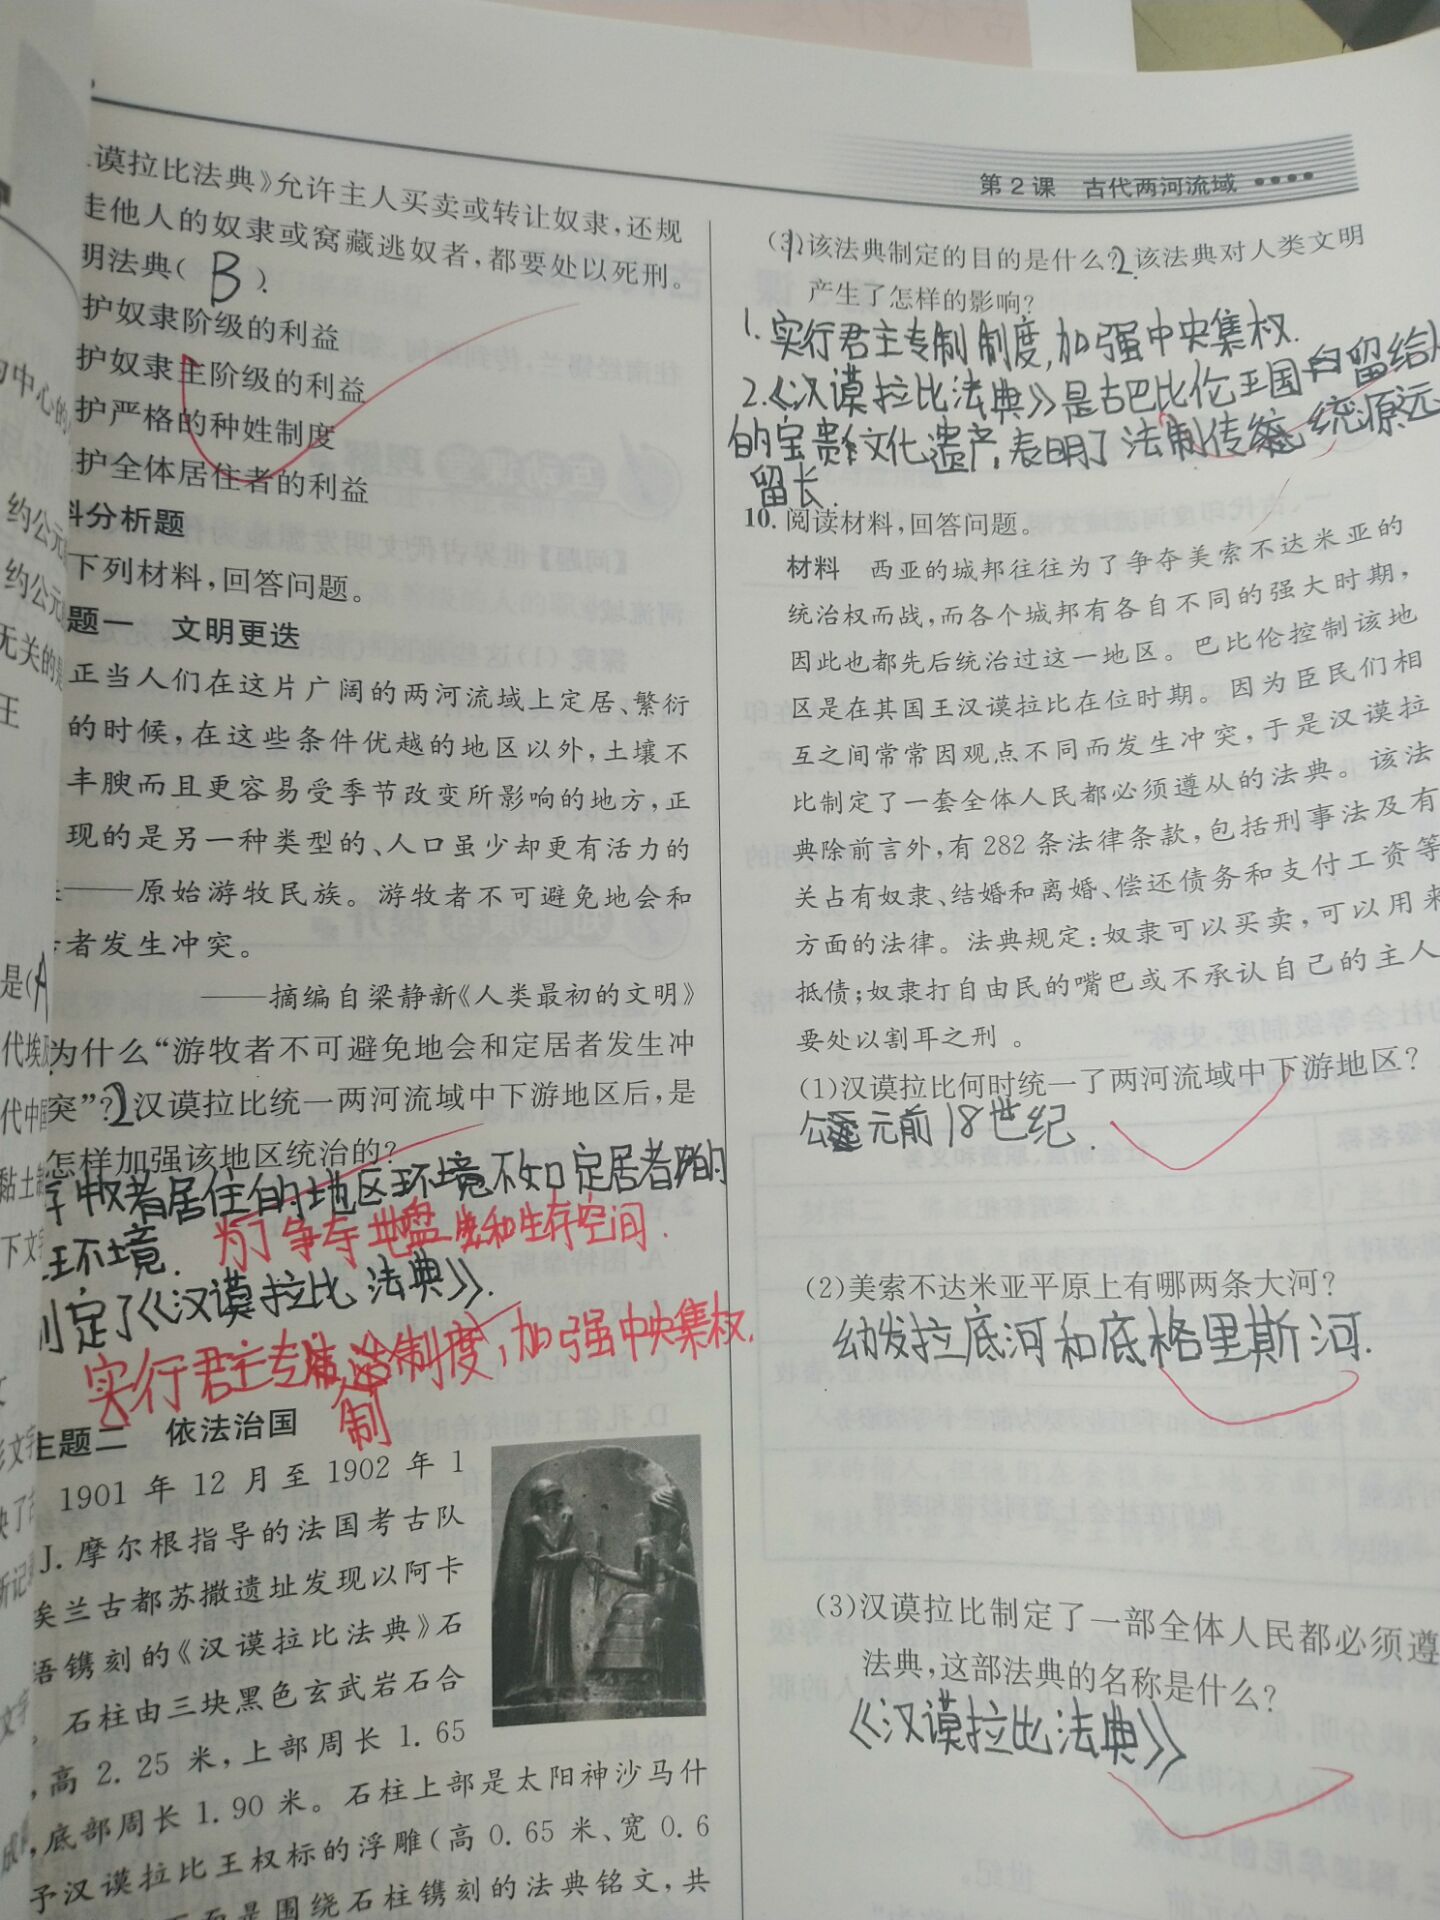 第2课 古代两河流域
谟拉比法典》允许主人买卖或转让奴隶,还规
走他人的奴隶或窝藏逃奴者,都要处以死刑。
明法典( B ).
护奴隶阶级的利益
护奴隶主阶级的利益
护严格的种姓制度
护全体居住者的利益
分析题
下列材料,回答问题。
题一 文明更迭
正当人们在这片广阔的两河流域上定居、繁衍
的时候,在这些条件优越的地区以外,土壤不
丰腴而且更容易受季节改变所影响的地方,正
现的是另一种类型的、人口虽少却更有活力的
——原始游牧民族。游牧者不可避免地会和
者发生冲突。
——摘编自梁静新《人类最初的文明》
为什么“游牧者不可避免地会和定居者发生冲
突”?2汉谟拉比统一两河流域中下游地区后,是
怎样加强该地区统治的?
牧者居住的地区环境不如定居者的
环境. 为了争夺地盘和生存空间.
定了《汉谟拉比法典》.
实行君主专制制度,加强中央集权.
主题二 依法治国
1901 年 12 月至 1902 年 1
J. 摩尔根指导的法国考古队
埃兰古都苏撒遗址发现以阿卡
语镌刻的《汉谟拉比法典》石
石柱由三块黑色玄武岩石合
,高 2.25 米,上部周长 1.65
,底部周长 1.90 米。石柱上部是太阳神沙马什
予汉谟拉比王权标的浮雕(高 0.65 米、宽 0.6
是围绕石柱镌刻的法典铭文,共
该法典制定的目的是什么?2.该法典对人类文明
产生了怎样的影响?
1.实行君主专制制度,加强中央集权.
2.《汉谟拉比法典》是古巴比伦王国留给
的宝贵文化遗产,表明了法制传统源远
留长.
10. 阅读材料,回答问题。
材料 西亚的城邦往往为了争夺美索不达米亚的
统治权而战,而各个城邦有各自不同的强大时期,
因此也都先后统治过这一地区。巴比伦控制该地
区是在其国王汉谟拉比在位时期。因为臣民们相
互之间常常因观点不同而发生冲突,于是汉谟拉
比制定了一套全体人民都必须遵从的法典。该法
典除前言外,有 282 条法律条款,包括刑事法及有
关占有奴隶、结婚和离婚、偿还债务和支付工资等
方面的法律。法典规定:奴隶可以买卖,可以用来
抵债;奴隶打自由民的嘴巴或不承认自己的主人
要处以割耳之刑。
(1)汉谟拉比何时统一了两河流域中下游地区?
公元前18世纪.
(2)美索不达米亚平原上有哪两条大河?
幼发拉底河和底格里斯河.
(3)汉谟拉比制定了一部全体人民都必须遵
法典,这部法典的名称是什么?
《汉谟拉比法典》